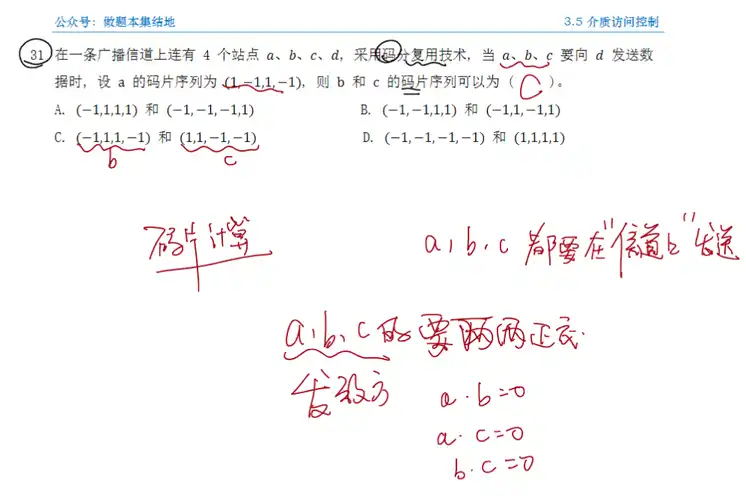 公众号：做题本集结地 3.5 介质访问控制
31 在一条广播信道上连有 4 个站点 a、b、c、d，采用码分复用技术，当 a、b、c 要向 d 发送数
据时，设 a 的码片序列为 (1,-1,1,-1)，则 b 和 c 的码片序列可以为（ C ）。
A. (-1,1,1,1) 和 (-1,-1,-1,1) B. (-1,-1,1,1) 和 (-1,1,-1,1)
C. (-1,1,1,-1) 和 (1,1,-1,-1) D. (-1,-1,-1,-1) 和 (1,1,1,1)
b c
码片计算 a，b，c 都要在“信道上”发送
a，b，c 的要两两正交.
发送方 a·b=0
a·c=0
b·c=0